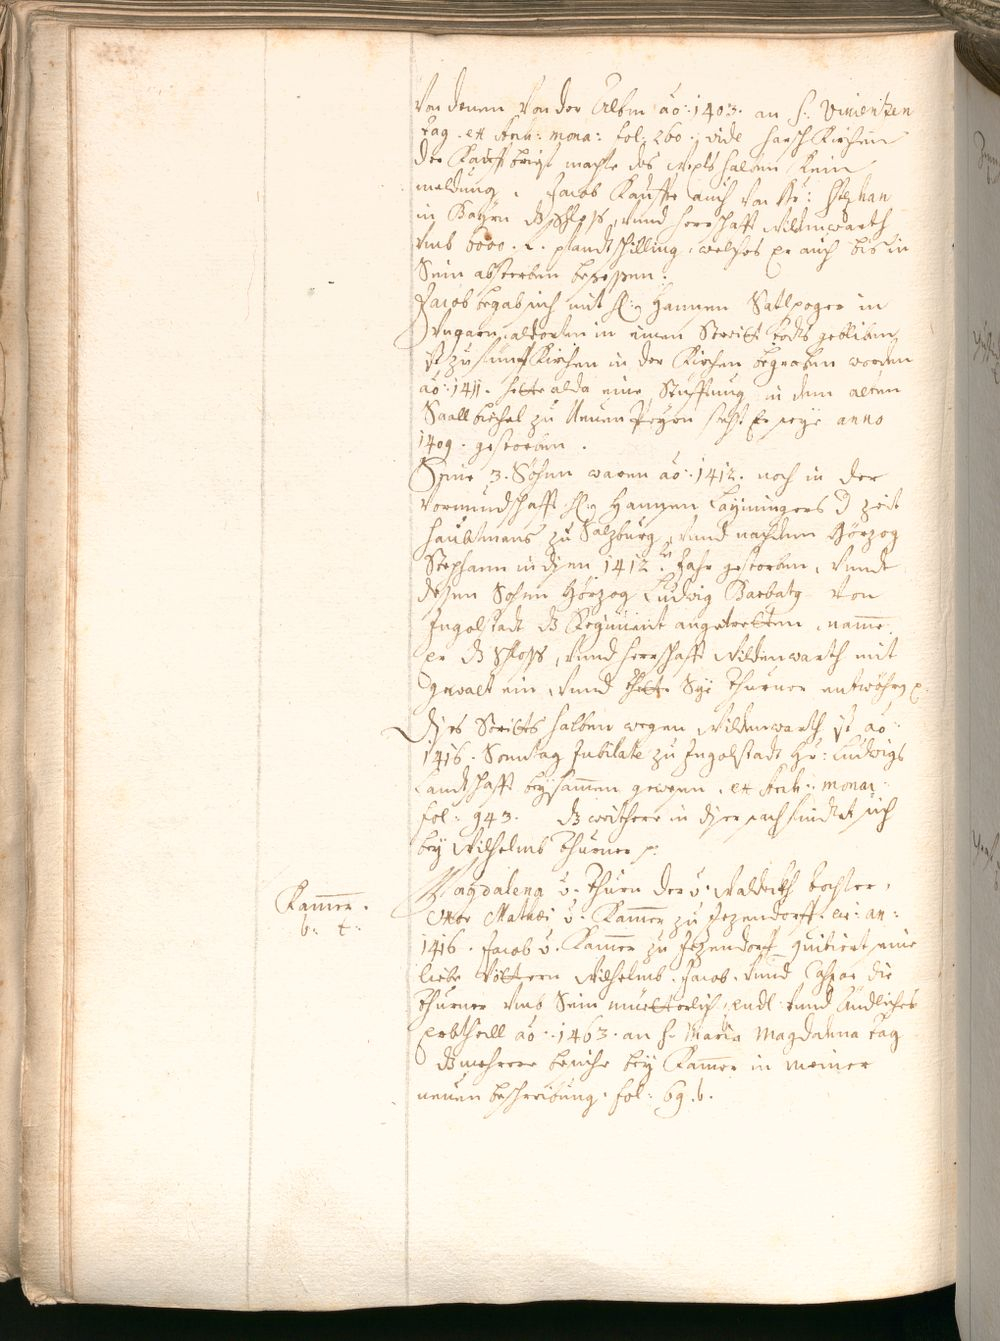 von denen von der Albm aō: 1403. an S: Vincentzen
tag. ex Arch: mona: fol: 260. vide harsch Kirchen
der Kauffbrief machte des Wepts halben kein
meldung. Jacob Kauffte auch von Hr: Stephan
in Bayrn dz schloss, vnnd herrschafft Wildenwarth
vmb 6000. fl. pfandtschilling, welches Er auch bis in
Sein absterben besessen.
Jacob begab sich mit H: Hannen Satlpoger in
Vngarn, aldorten in einen Streitt todts gebliben,
ist zu fünffkirchen in der Kirchen begraben worden
aō: 1411. hette alda eine Stifftung, in dem alten
Saallbüchel zu Neuen Peyrn steht Er seye anno
1409. gestorben.
Seine 3. Söhne waren aō: 1412. noch in der
Vormundschafft H: Hannsen Layningers d zeit
haubtmans zu Salzburg, vnnd nachdem Hörzog
Stephann in disen 1412.ⁿ Jahr gestorben, vnndt
dessen Sohn Hörzog Ludwig Barbatg von
Ingolstadt dz Regiment angetretten, namme
er dz schloss, vnnd herrschafft Wildenwarth mit
gwalt ein, vnnd thette Sye Thurner entwöhrn
Dises Streitts halben wegen Wildenwarth ist aō:
1416. Sonntag Jubilate zu Ingolstadt Hr: Ludwigs
Landtschafft beysammen gewesen. ex Arch: mona:
fol: 943. dz weithere in diser sach findtet sich
bey Wilhelmb Thurner
Kammer.
b: t:
Magdalena v. Thurn der v. Waldeckh tochter,
Uxor Mathei v. Kammer zu Jezendorff. ca: an:
1416. Jacob v. Kammer zu Jezendorff quitiert seine
liebe Vöttern Wilhelmb, Jacob, vnnd Caspar die
Thurner vmb Sein muetterlich, endl: vnnd Ändliches
erbtheill aō: 1463. an S: Maria Magdalena tag
dz mehrere besiche bey Kammer in meiner
neuen beschreibung. fol: 69. b.